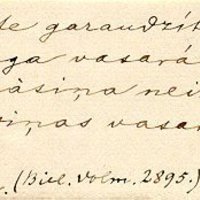 te garaudzīt
ga vasarā
àsiņa nei
iņas vasar
. (Biel. Volm. 2895.)